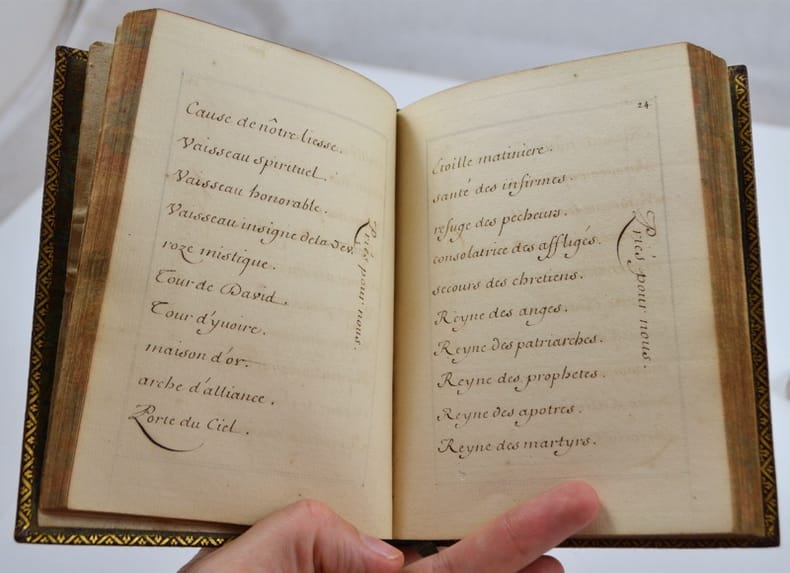 Cause de nôtre liesse.
Vaisseau spirituel.
Vaisseau honorable.
Vaisseau insigne dela Dev.
roze mistique.
Tour de David.
Tour d'yuoire.
maison d'or.
arche d'alliance.
Porte du Ciel.
Priés pour nous.
24
Etoille matiniere.
santé des infirmes.
refuge des pecheurs.
consolatrice des affligés.
secours des chretiens.
Reyne des anges.
Reyne des patriarches.
Reyne des prophetes.
Reyne des apotres.
Reyne des martyrs.
Priés pour nous.